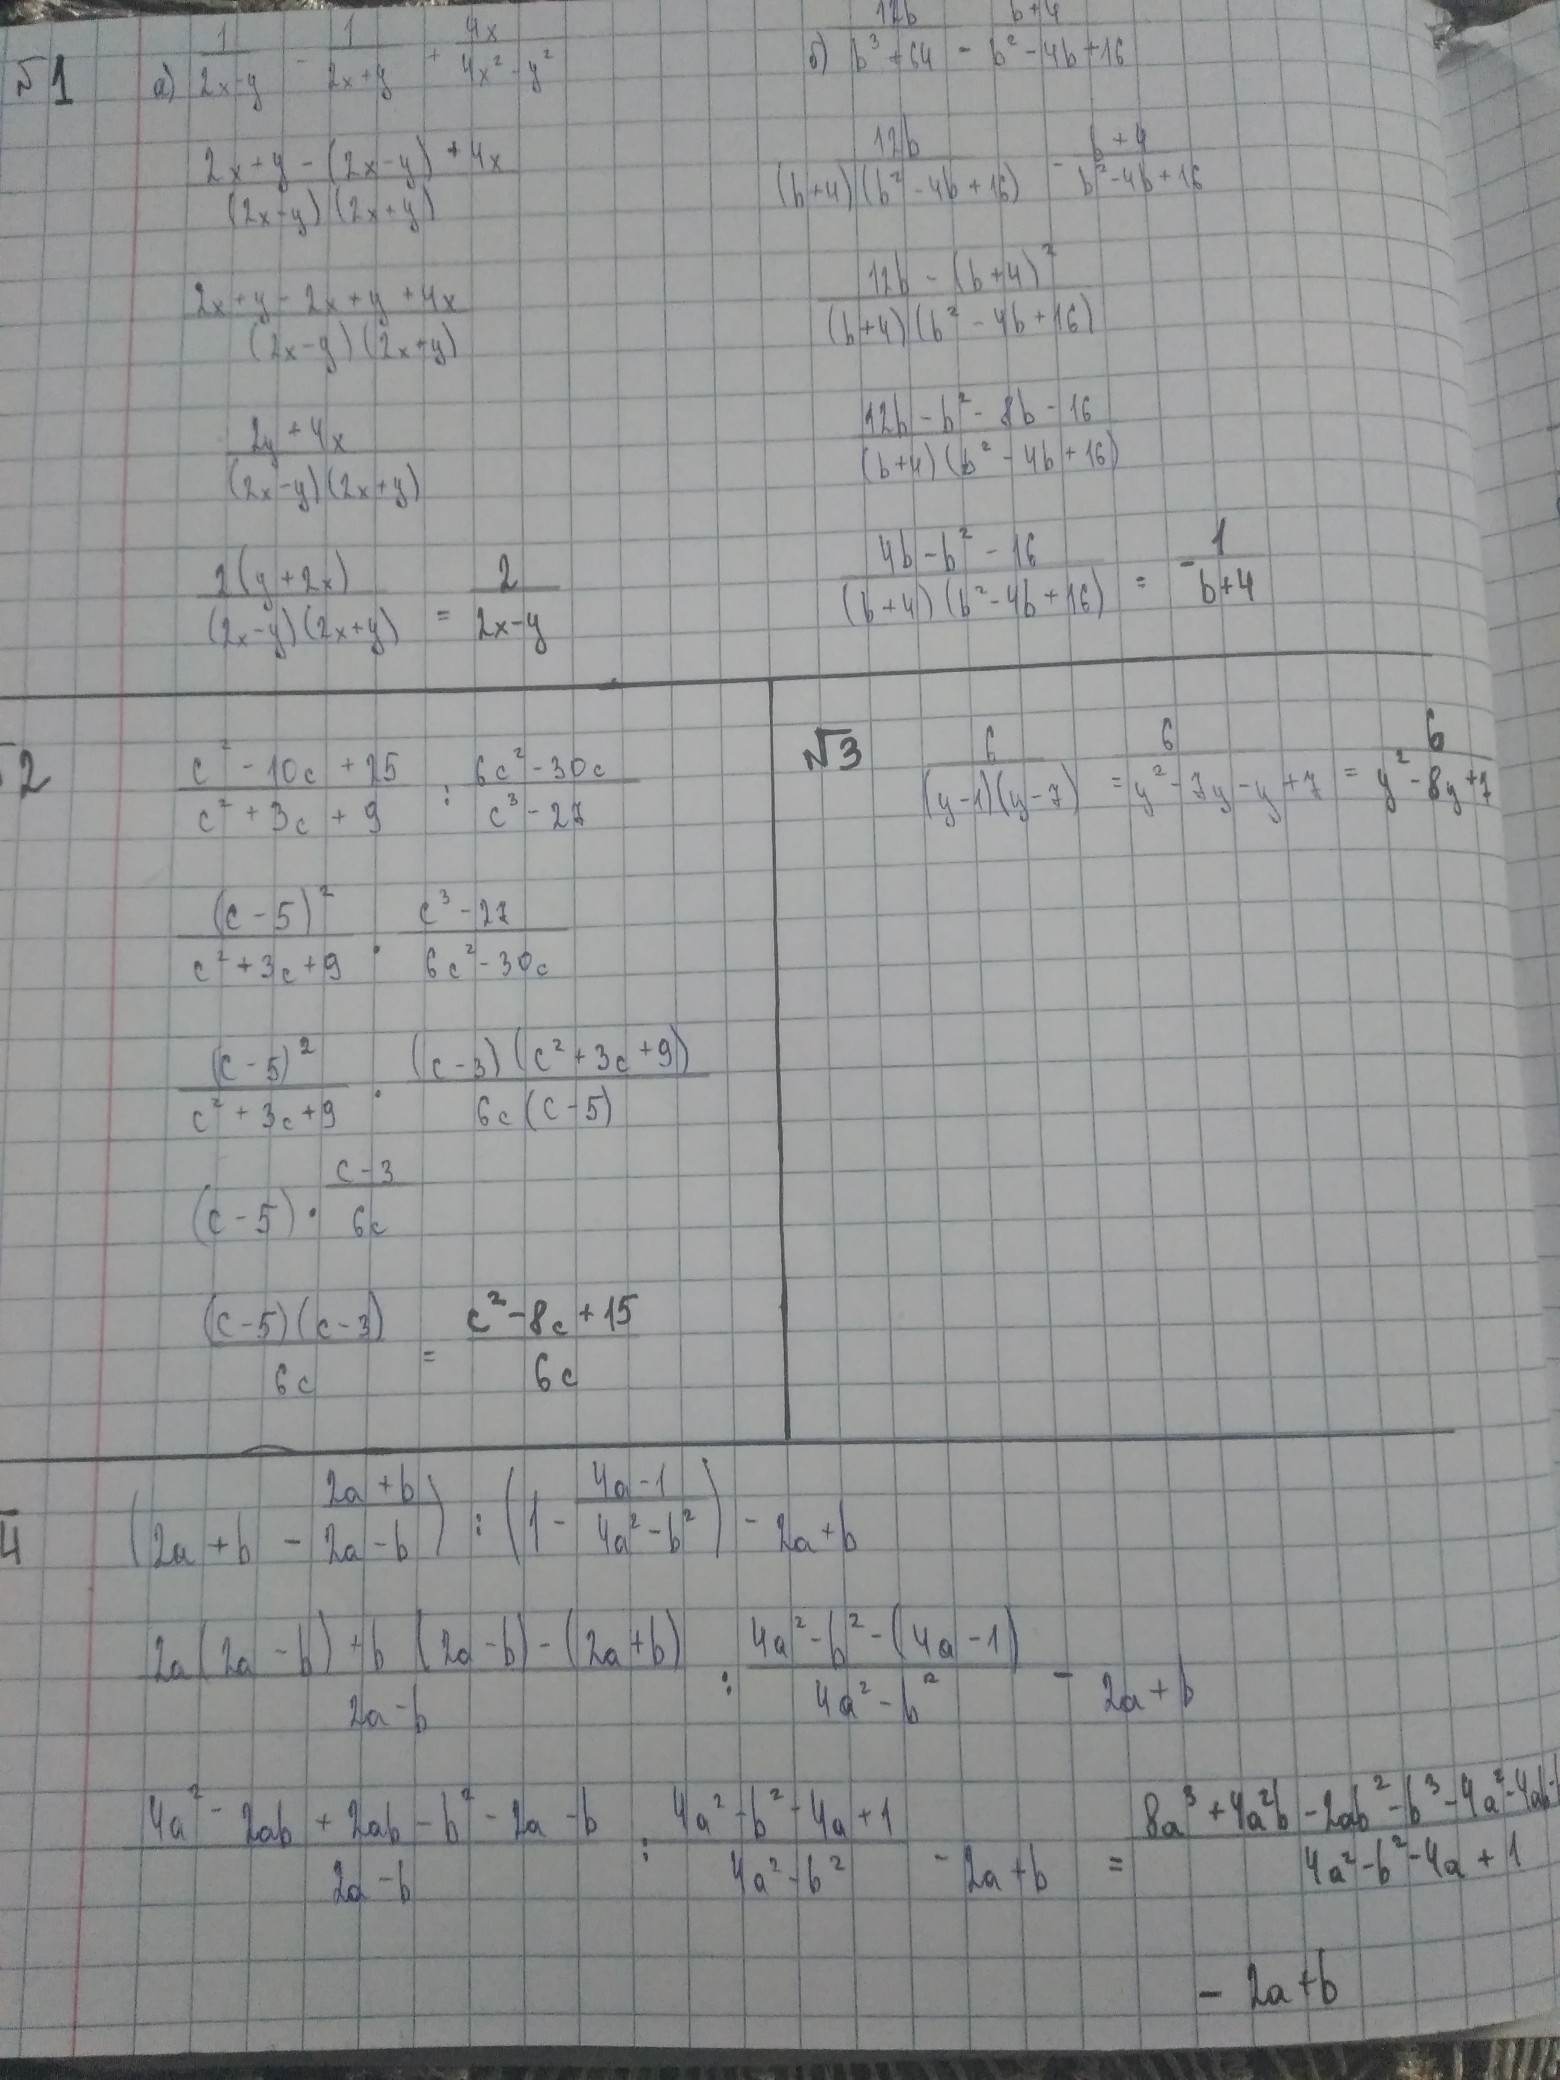 №1 а) 1/(2x-y) - 1/(2x+y) + 4x/(4x²-y²)
(2x+y-(2x-y)+4x)/((2x-y)(2x+y))
(2x+y-2x+y+4x)/((2x-y)(2x+y))
(2y+4x)/((2x-y)(2x+y))
2(y+2x)/((2x-y)(2x+y)) = 2/(2x-y)
б) 12b/(b³+64) - (b+4)/(b²-4b+16)
12b/((b+4)(b²-4b+16)) - (b+4)/(b²-4b+16)
(12b-(b+4)²)/((b+4)(b²-4b+16))
(12b-b²-8b-16)/((b+4)(b²-4b+16))
(4b-b²-16)/((b+4)(b²-4b+16)) = -1/(b+4)
2 (c²-10c+25)/(c²+3c+9) : (6c²-30c)/(c³-27)
(c-5)²/(c²+3c+9) · (c³-27)/(6c²-30c)
(c-5)²/(c²+3c+9) · ((c-3)(c²+3c+9))/(6c(c-5))
(c-5) · (c-3)/6c
((c-5)(c-3))/6c = (c²-8c+15)/6c
№3 6/((y-1)(y-7)) = 6/(y²-7y-y+7) = 6/(y²-8y+7)
4 (2a+b - (2a+b)/(2a-b)) : (1 - (4a-1)/(4a²-b²)) - 2a+b
(2a(2a-b)+b(2a-b)-(2a+b))/(2a-b) : (4a²-b²-(4a-1))/(4a²-b²) - 2a+b
(4a²-2ab+2ab-b²-2a-b)/(2a-b) : (4a²-b²-4a+1)/(4a²-b²) - 2a+b = (8a³+4a²b-2ab²-b³-4a²-4ab-)/(4a²-b²-4a+1)
- 2a+b